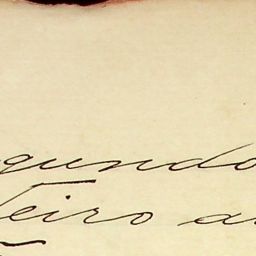 gundo
eiro a